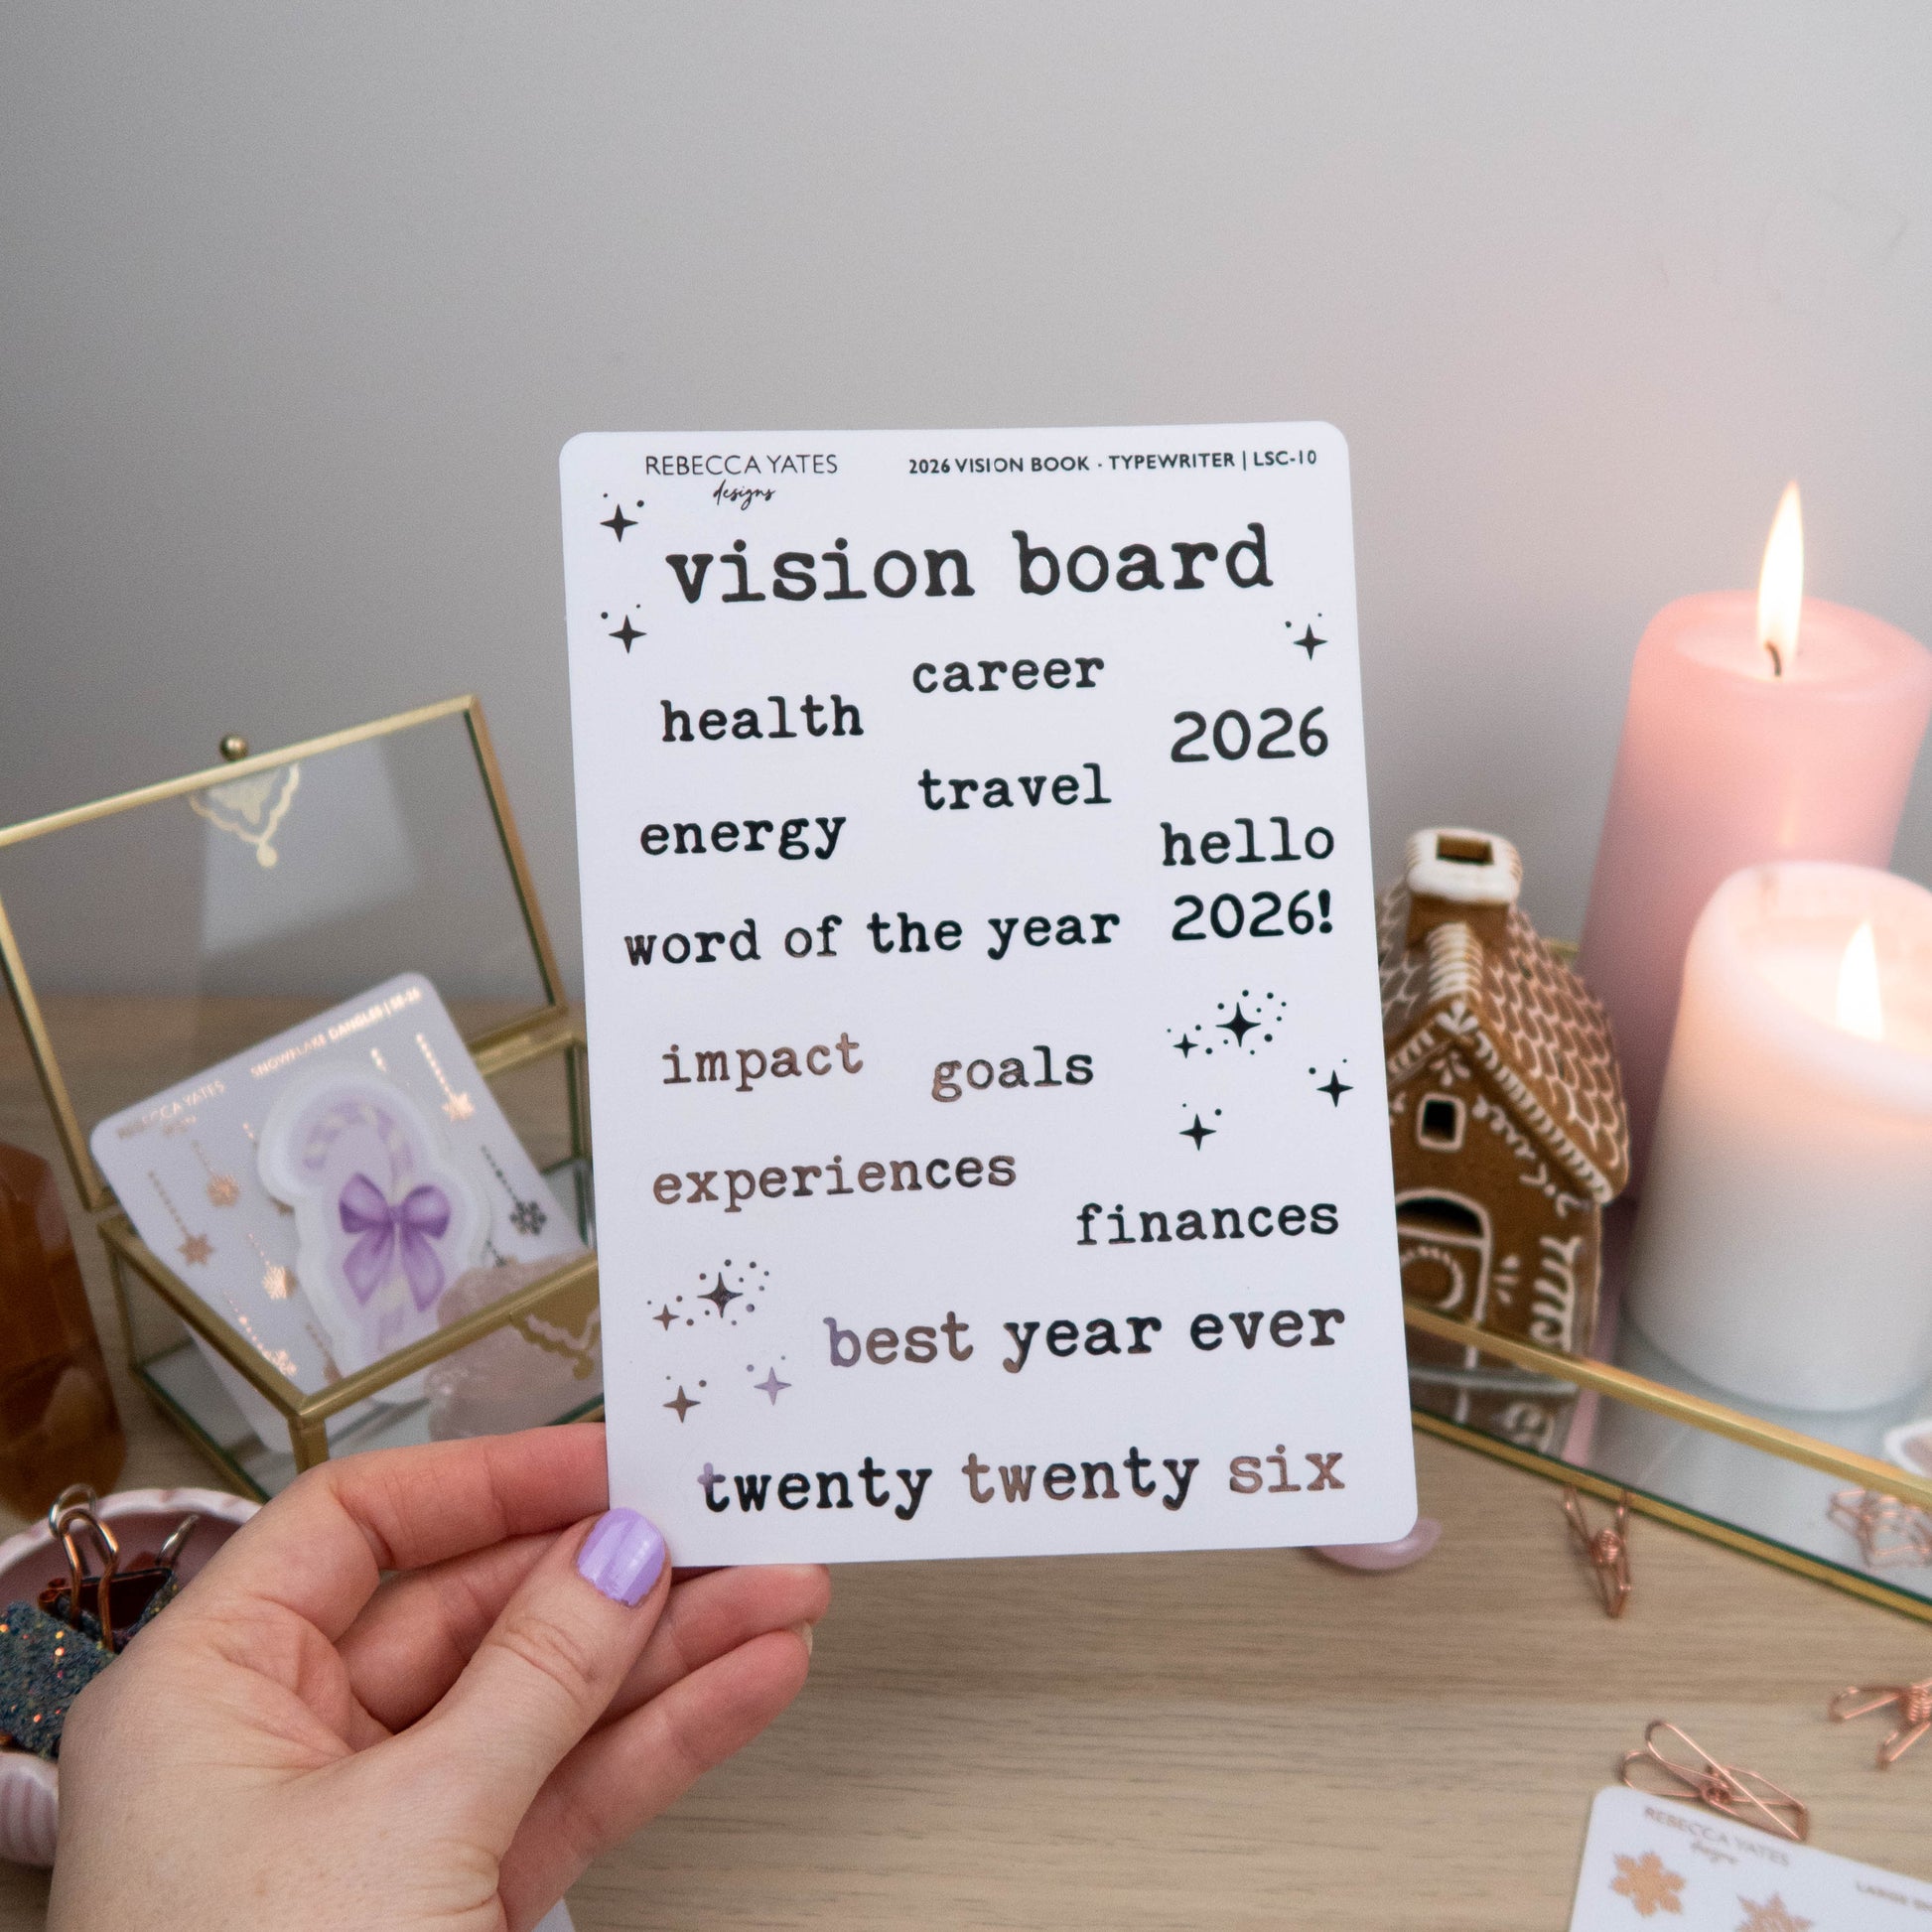 REBECCA YATES
designs
2026 VISION BOOK · TYPEWRITER | LSC-10
vision board
career
health
2026
travel
energy
hello
2026!
word of the year
impact
goals
experiences
finances
best year ever
twenty twenty six
REBECCA YATES
SNOWFLAKE DANGLES | SE-26
REBECCA YATES
designs